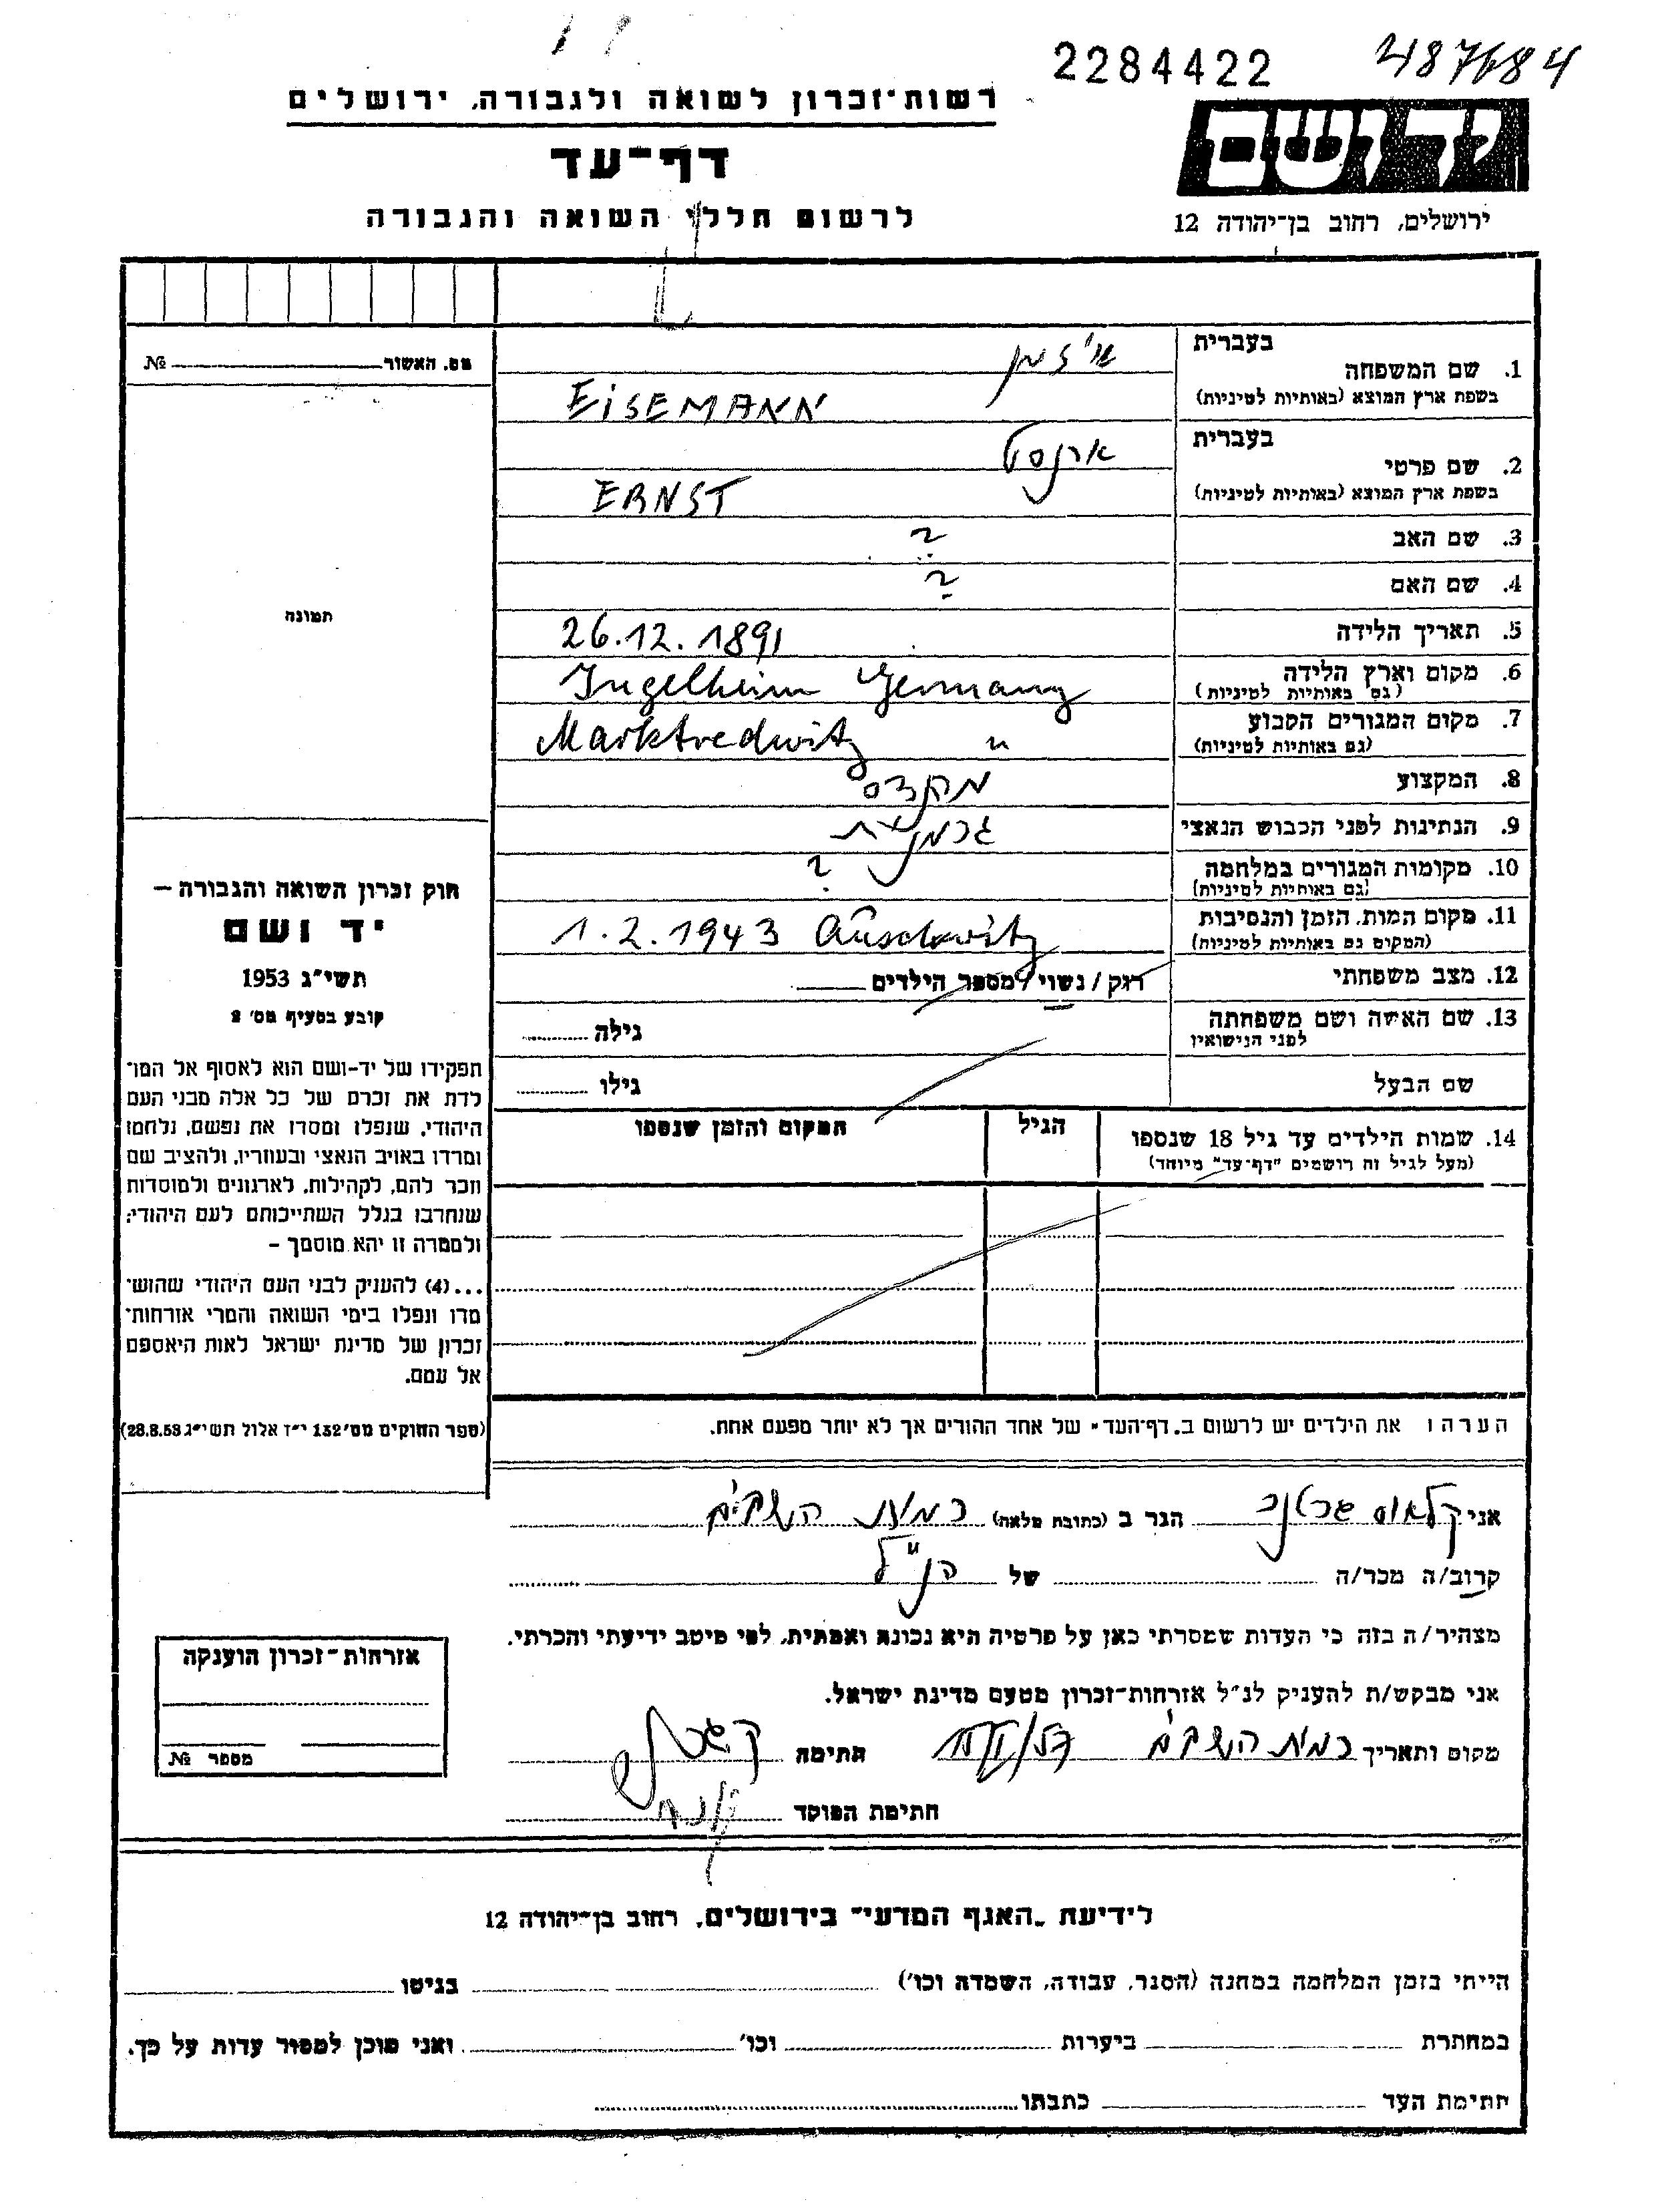 2284422 487684
רשות־זכרון לשואה ולגבורה, ירושלים
יד ושם
דף־עד
לרשום חללי השואה והגבורה
ירושלים, רחוב בן־יהודה 12
מס. האשור № 
בעברית
1. שם המשפחה איזמן
בשפת ארץ המוצא (באותיות לטיניות) EiSEMANN
בעברית
2. שם פרטי ארנסט
בשפת ארץ המוצא (באותיות לטיניות) ERNST
3. שם האב ?
4. שם האם ?
תמונה
5. תאריך הלידה 26.12.1891
6. מקום וארץ הלידה Ingelheim Germany
(גם באותיות לטיניות)
7. מקום המגורים הקבוע Marktredwitz "
(גם באותיות לטיניות)
8. המקצוע
9. הנתינות לפני הכבוש הנאצי גרמנית
10. מקומות המגורים במלחמה ?
(גם באותיות לטיניות)
11. מקום המות, הזמן והנסיבות 1.2.1943 Auschwitz
(המקום גם באותיות לטיניות)
12. מצב משפחתי רוק / נשוי / מספר הילדים
13. שם האשה ושם משפחתה גילה
לפני הנישואין
שם הבעל גילו
14. שמות הילדים עד גיל 18 שנספו הגיל המקום והזמן שנספו
(מעל לגיל זה רושמים "דף־עד" מיוחד)
חוק זכרון השואה והגבורה —
יד ושם
תשי"ג 1953
קובע בסעיף מס' 2
תפקידו של יד-ושם הוא לאסוף אל המו־
לדת את זכרם של כל אלה מבני העם
היהודי, שנפלו ומסרו את נפשם, נלחמו
ומרדו באויב הנאצי ובעוזריו, ולהציב שם
וזכר להם, לקהילות, לארגונים ולמוסדות
שנחרבו בגלל השתייכותם לעם היהודי;
ולמטרה זו יהא מוסמך —
...(4) להעניק לבני העם היהודי שהוש־
מדו ונפלו בימי השואה והמרי אזרחות־
זכרון של מדינת ישראל לאות היאספם
אל עמם.
(ספר החוקים מס' 132 י"ז אלול תשי"ג 28.8.53)
הערה: את הילדים יש לרשום ב„דף־העד" של אחד ההורים אך לא יותר מפעם אחת.
אני קלאוס הגר ב (כתובת מלאה) רמות השבים
קרוב/ה מכר/ה של הנ"ל
מצהיר/ה בזה כי העדות שמסרתי כאן על פרטיה היא נכונה ואמתית, לפי מיטב ידיעתי והכרתי.
אני מבקש/ת להעניק לנ"ל אזרחות־זכרון מטעם מדינת ישראל.
מקום ותאריך רמות השבים חתימה
חתימת הפוקד
אזרחות־זכרון הוענקה
מספר №
לידיעת „האגף המדעי" בירושלים, רחוב בן־יהודה 12
הייתי בזמן המלחמה במחנה (הסגר, עבודה, השמדה וכו') בגיטו
במחתרת ביערות וכו' ואני מוכן למסור עדות על כך.
חתימת העד כתבתו